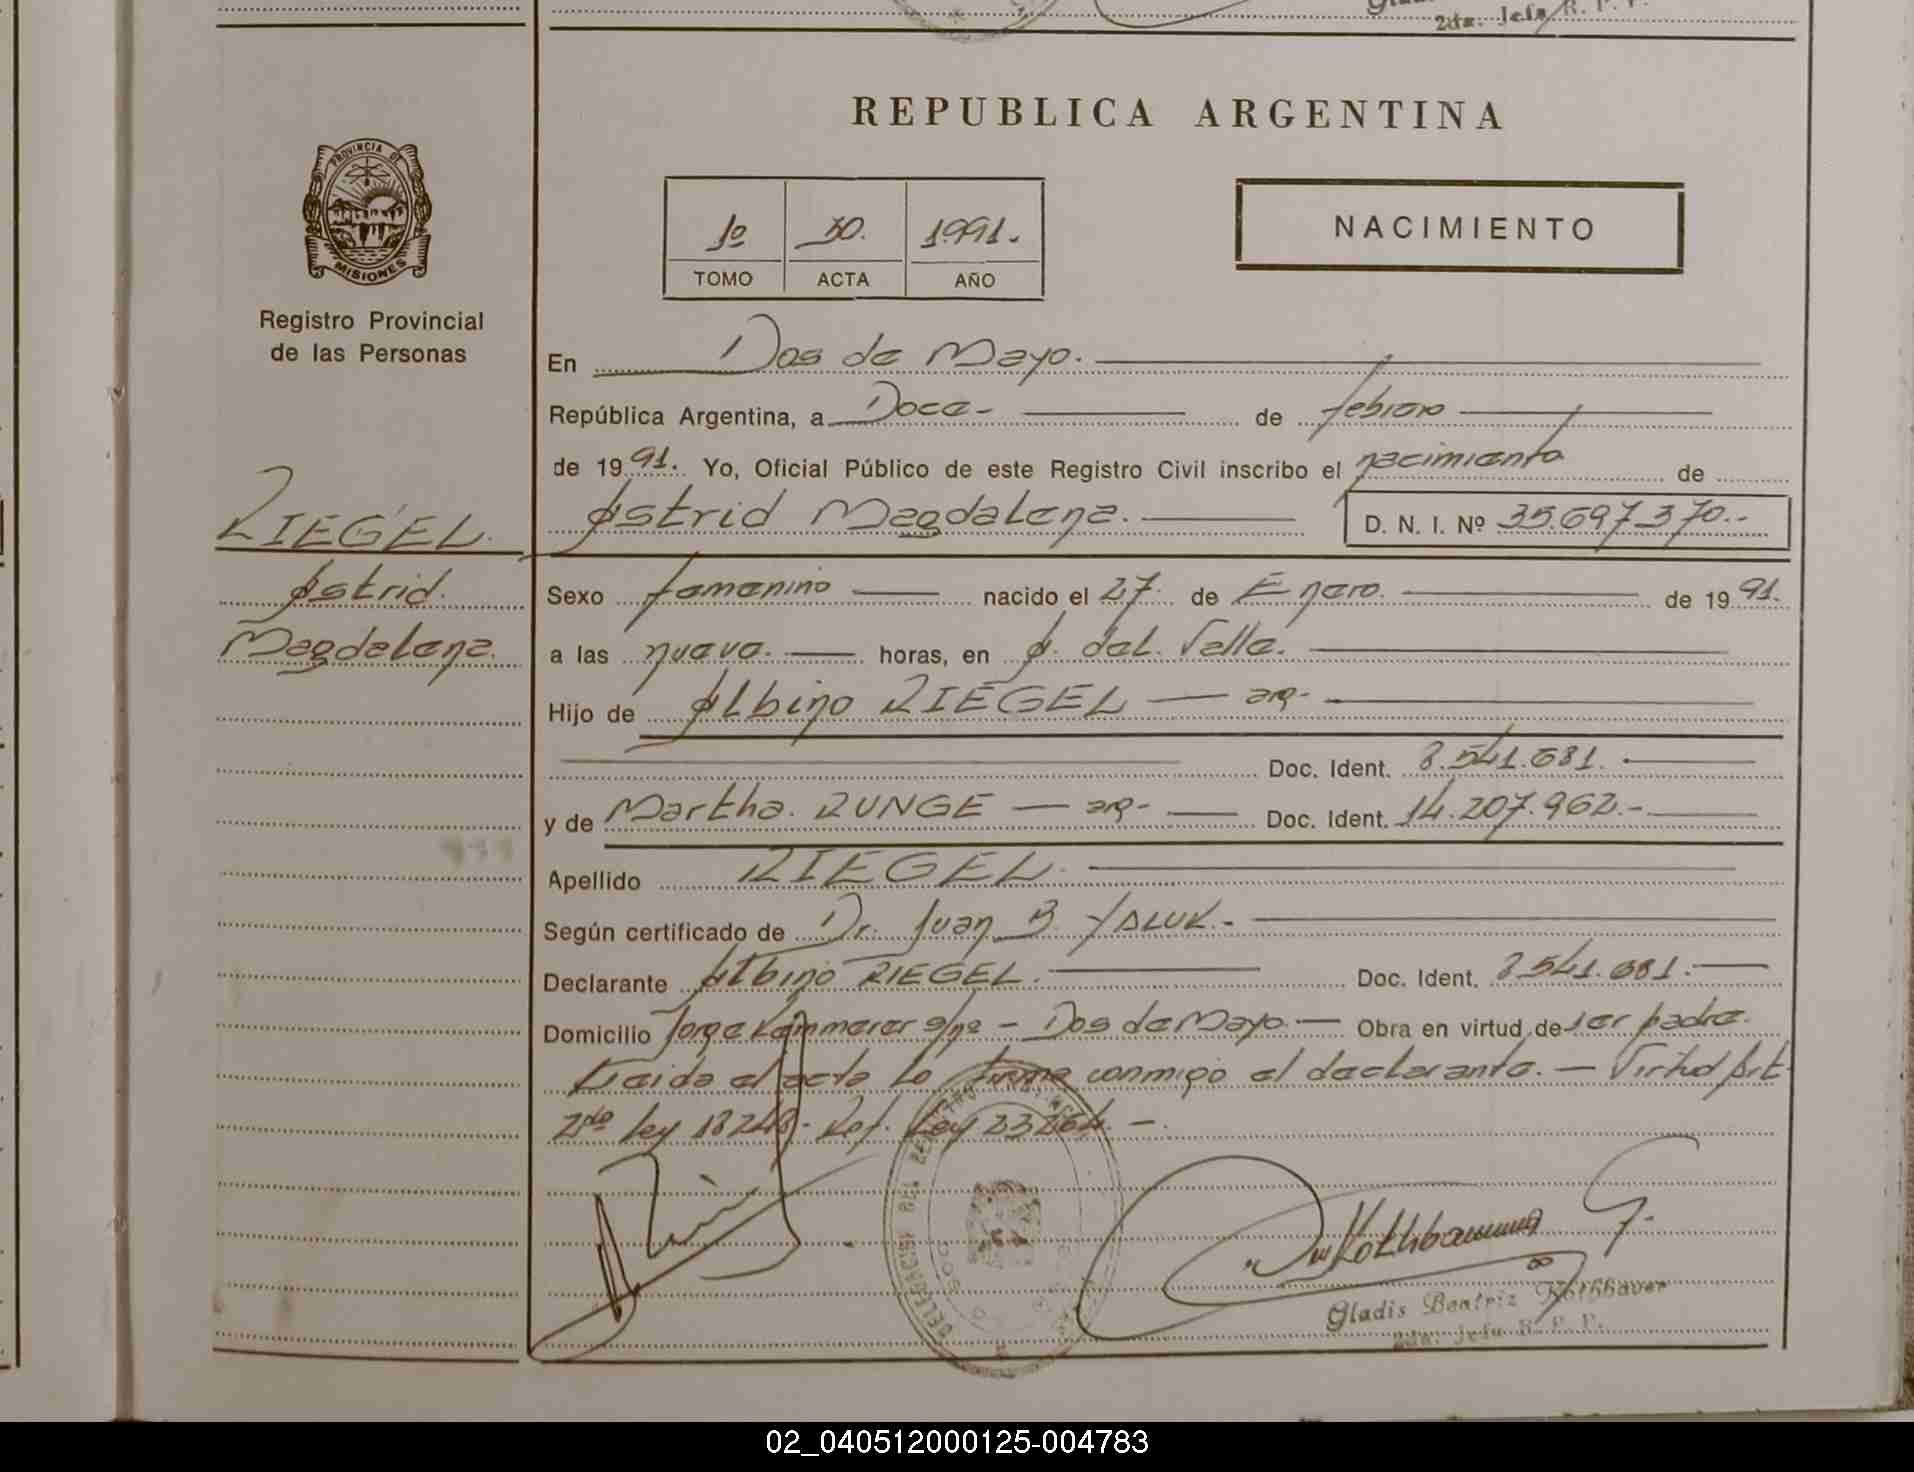 2da. Jefa R. P. P.
REPUBLICA ARGENTINA
PROVINCIA DE
MISIONES
Registro Provincial
de las Personas
1º 30. 1.991.-
TOMO ACTA AÑO
NACIMIENTO
En Dos de Mayo.
República Argentina, a Doce- de febrero
de 1991. Yo, Oficial Público de este Registro Civil inscribo el nacimiento de
Astrid Magdalena. D. N. I. Nº 35.697.370.-
RIEGEL.
Astrid.
Magdalena.
Sexo femenino nacido el 27 de Enero. de 1991.
a las nueve. horas, en A. del Valle.
Hijo de Albino RIEGEL — arg-
Doc. Ident. 8.541.681.
y de Martha. RUNGE — arg- Doc. Ident. 14.207.962.-
Apellido RIEGEL.
Según certificado de Dr. Juan B. YALUK.-
Declarante Albino RIEGEL. Doc. Ident. 8.541.681.
Domicilio Jorge Kammerer s/nº - Dos de Mayo.- Obra en virtud de ser padre.
Leida el acta lo firma conmigo el declarante. — Virtud Art
2do Ley 18248- Ref. Ley 23264.-
Gladis Beatriz Rothbauer
2da. Jefa R. P. P.
02_040512000125-004783